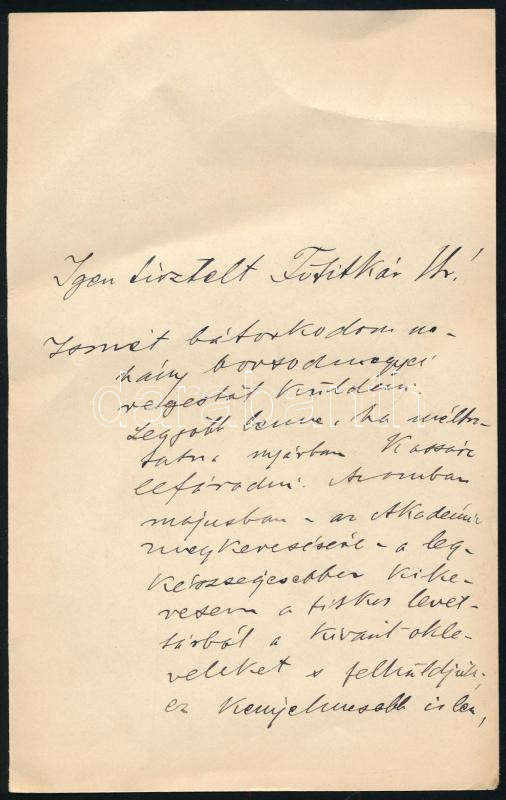 Igen tisztelt Főtitkár Úr!
Ismét bátorkodom né-
hány borsodmegyei
regestát küldeni.
Legjobb lenne, ha méltóz-
tatna nyárban Kassára
lefáradni. Azonban
májusban – az Akadémia
megkeresésére – a leg-
készségesebben kike-
resem a titkos levél-
tárból a kivánt okle-
veleket s felküldjük,
ez kényelmesebb is lesz,
darabanth